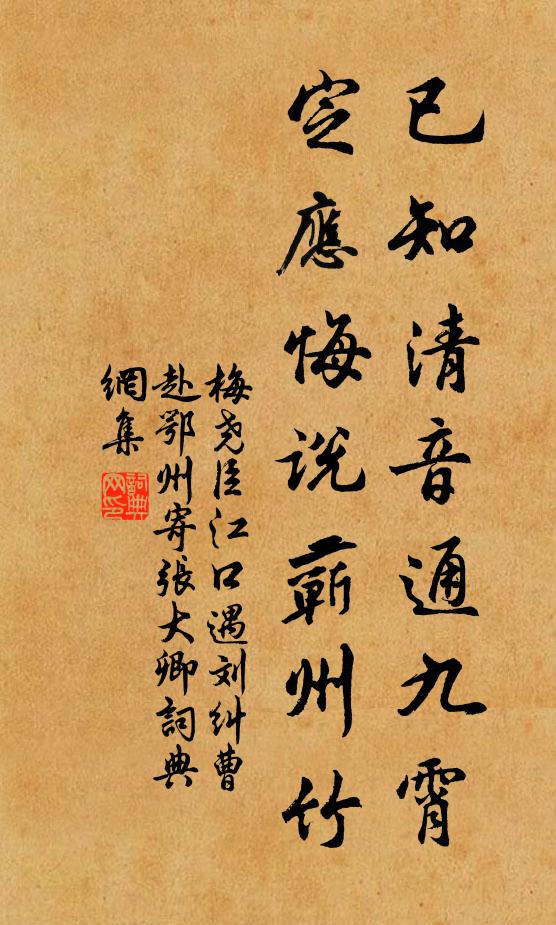 已知清音通九霄
定應悔说蘄州竹
梅尧臣江口遇刘糾曹
赴鄂州寄張大卿詞典
網集
詞典
网印